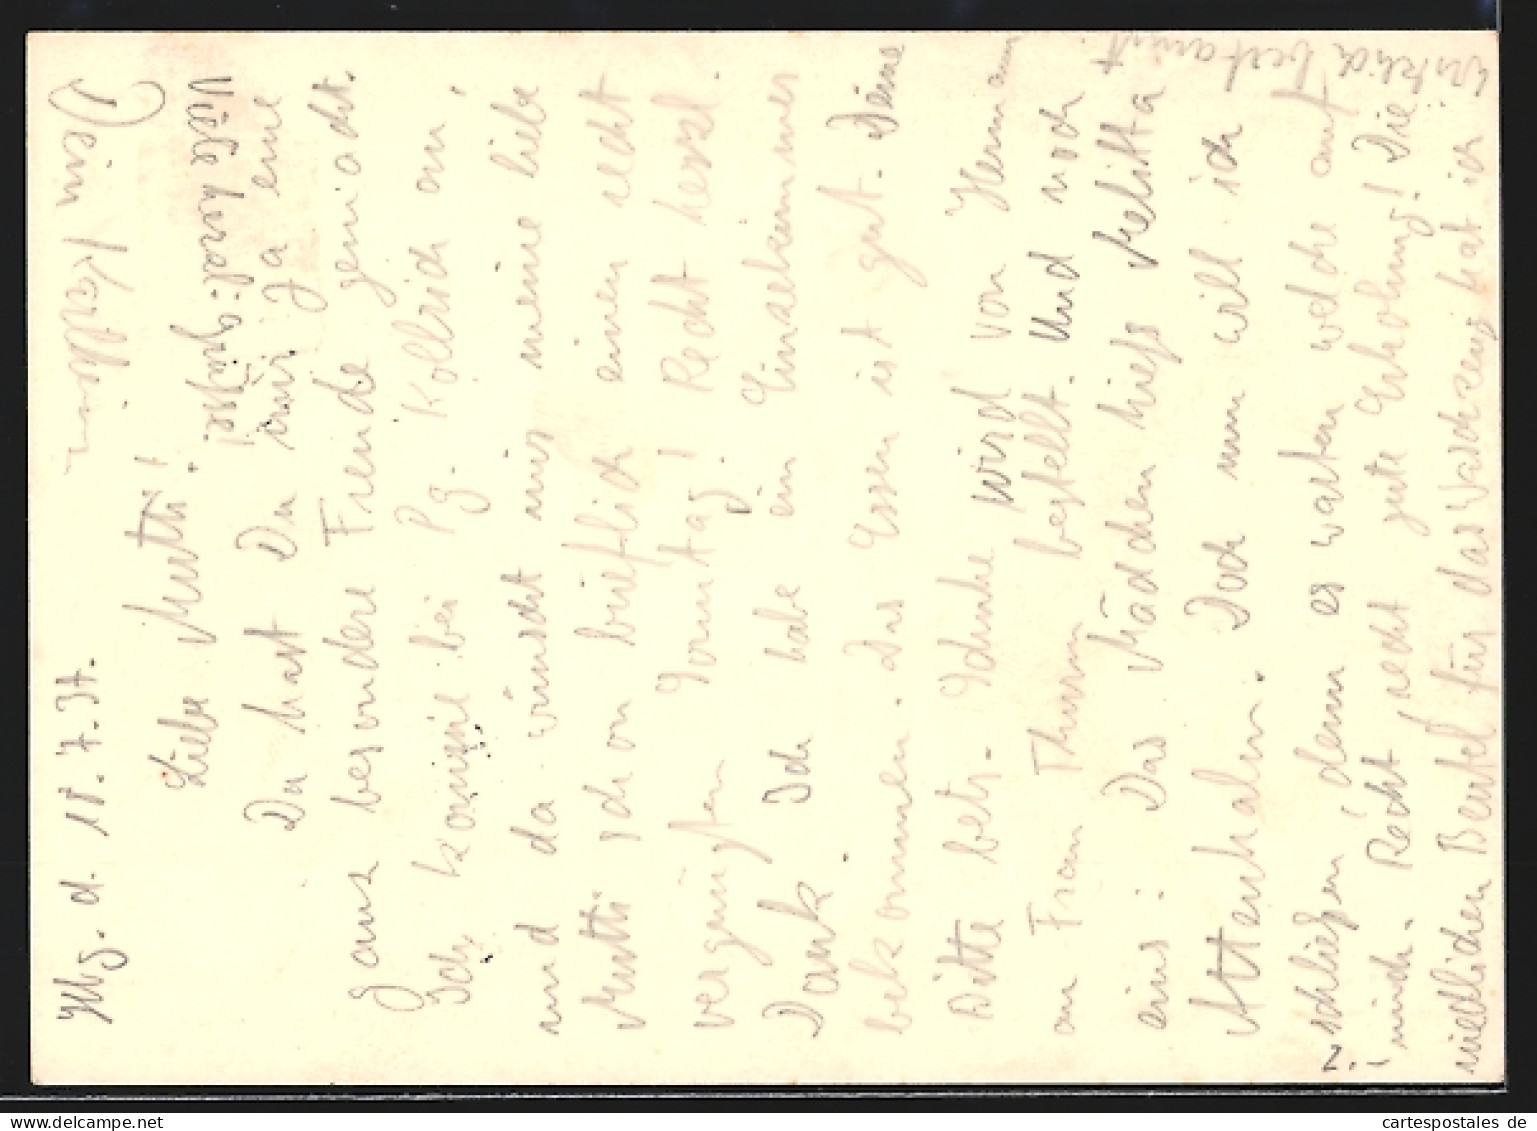 Hbg. d. 18.7.37.
Liebe Mutti!
Du hast Du mir ja eine
ganz besondere Freude gemacht.
Ich komme bei Pg. Kollrich an
und da wünscht mir meine liebe
Mutti schon brieflich einen recht
vergnügten Sonntag! Recht herzl.
Dank. Ich habe ein Einzelzimmer
bekommen. Das Essen ist gut. Deine
Bitte betr. Schunke wird von Hermann
an Frau Thurm bestellt. Und noch
eins: Das Mädchen hiess Melitta
Attenhalm. Doch nun will ich
schließen, denn es warten welche auf
mich. Recht recht gute Erholung! Die
niedlichen Beutel für das Waschzeug hat ich
wirklich bestaunt.
Viele herzl. Grüße!
Dein Karlheinz
cartespostales de